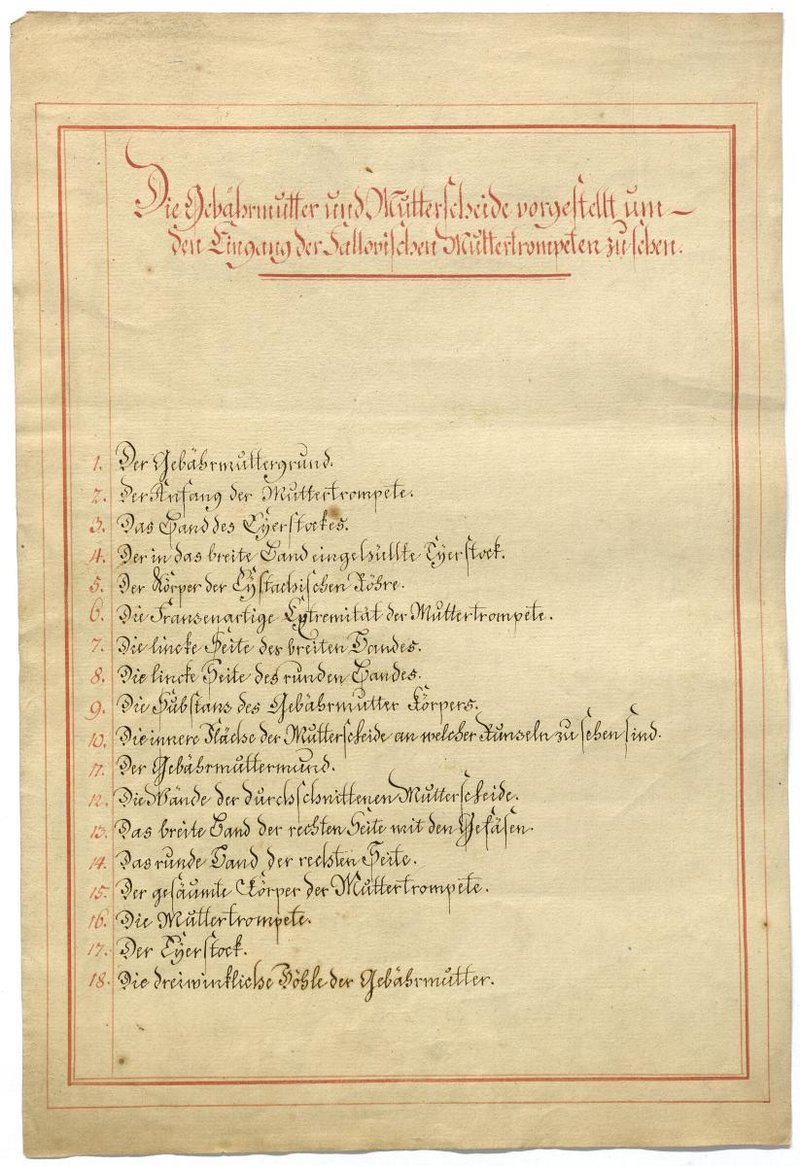 Die Gebährmutter und Mutterscheide vorgestellt um
den Eingang der Fallopischen Muttertrompeten zu sehen.
1. Der Gebährmuttergrund.
2. Der Anfang der Muttertrompete.
3. Das Band des Eyerstockes.
4. Der in das breite Band eingehüllte Eyerstock.
5. Der Körper der Eystachischen Röhre.
6. Die Fransenartige Extremität der Muttertrompete.
7. Die lincke Seite des breiten Bandes.
8. Die lincke Seite des runden Bandes.
9. Die Substans des Gebährmutter Körpers.
10. Die innere Fläche der Mutterscheide an welcher Runseln zu sehen sind.
11. Der Gebährmuttermund.
12. Die Wände der durchschnittenen Mutterscheide.
13. Das breite Band der rechten Seite mit den Gefäsen.
14. Das runde Band der rechten Seite.
15. Der gesäumte Körper der Muttertrompete.
16. Die Muttertrompete.
17. Der Eyerstock.
18. Die dreiwinkliche Höhle der Gebährmutter.